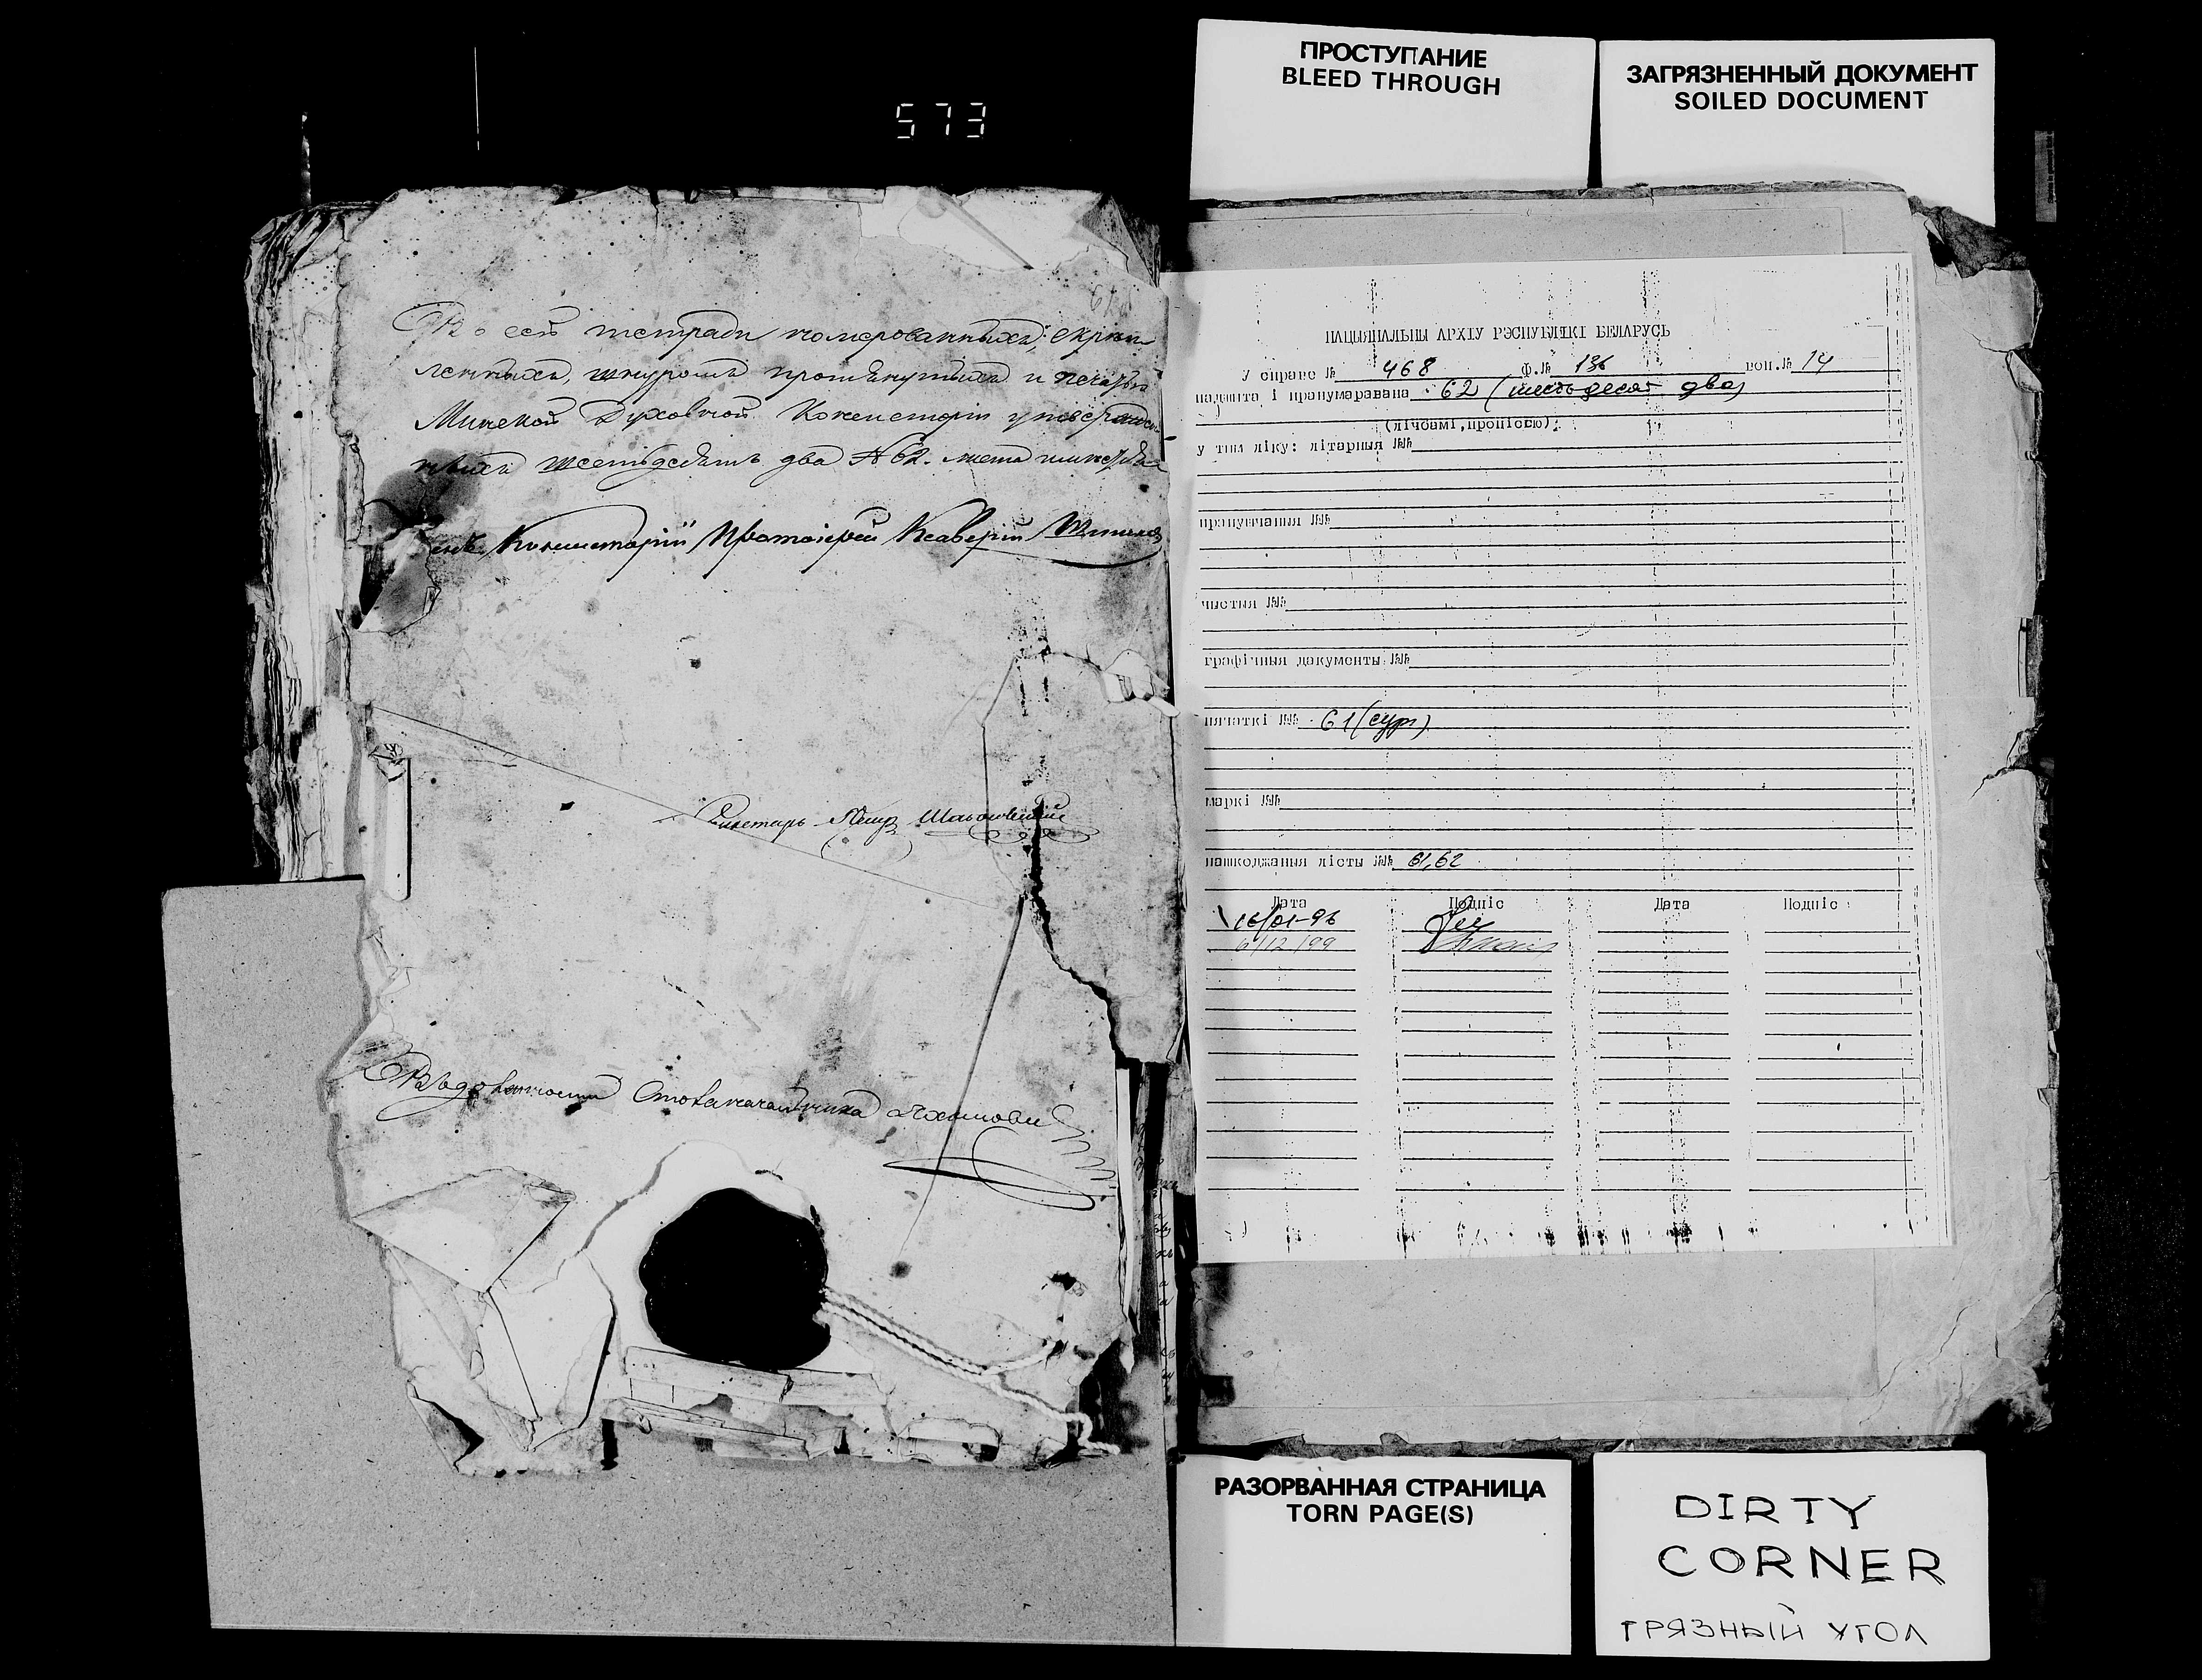 573
ПРОСТУПАНИЕ
BLEED THROUGH
ЗАГРЯЗНЕННЫЙ ДОКУМЕНТ
SOILED DOCUMENT
Въ сей тетради номерованныхъ, скрѣп-
ленныхъ, шнуромъ протянутыхъ и печатью
Минской Духовной Консисторіи утвержден-
ныхъ шестьдесятъ два № 62. листа
Консисторіи Протоіерей Ксаверій
Секретарь
Столоначальника
НАЦЫЯНАЛЬНЫ АРХІУ РЭСПУБЛІКІ БЕЛАРУСЬ
У справе № 468 ф.№ 136 воп.№ 14
падшыта і пранумаравана 62 (шестьдесят два)
(лічбамі, пропіссю)
у тым ліку: літарныя №№
прапушчаныя №№
чыстыя №№
графічныя дакументы №№
пячаткі №№ 61 (сург)
маркі №№
пашкоджаныя лісты №№ 61, 62
Дата Подпіс Дата Подпіс
16/01-96
6/12/99
РАЗОРВАННАЯ СТРАНИЦА
TORN PAGE(S)
DIRTY
CORNER
ГРЯЗНЫЙ УГОЛ